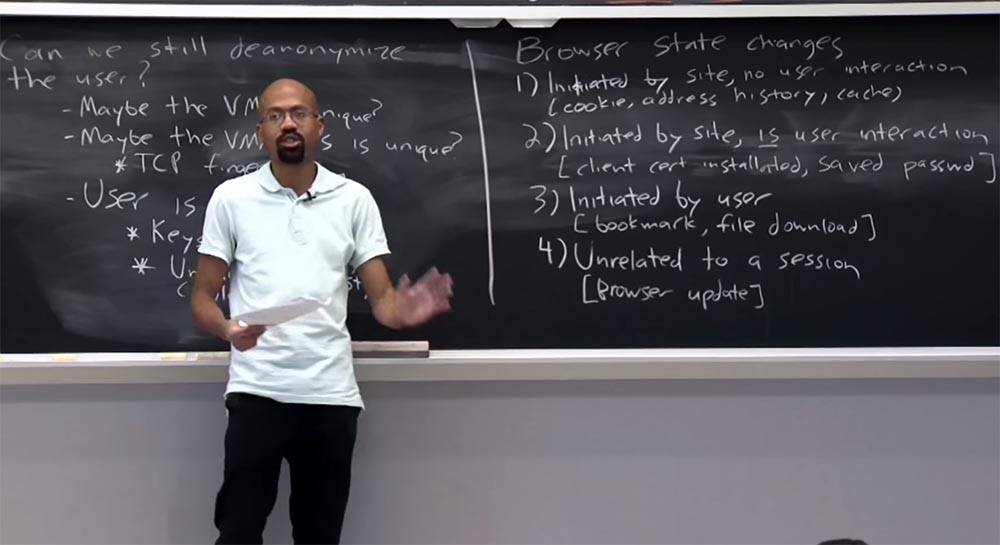 Can we still deanonymize
the user?
- Maybe the VM unique?
- Maybe the VM is unique?
* TCP
- User is
*
*
Browser state changes
1) Initiated by site, no user interaction
(cookie, address history, cache)
2) Initiated by site, is user interaction
[client cert installated, saved passwd]
3) Initiated by user
[bookmark, file download]
4) Unrelated to a session
[Browser update]